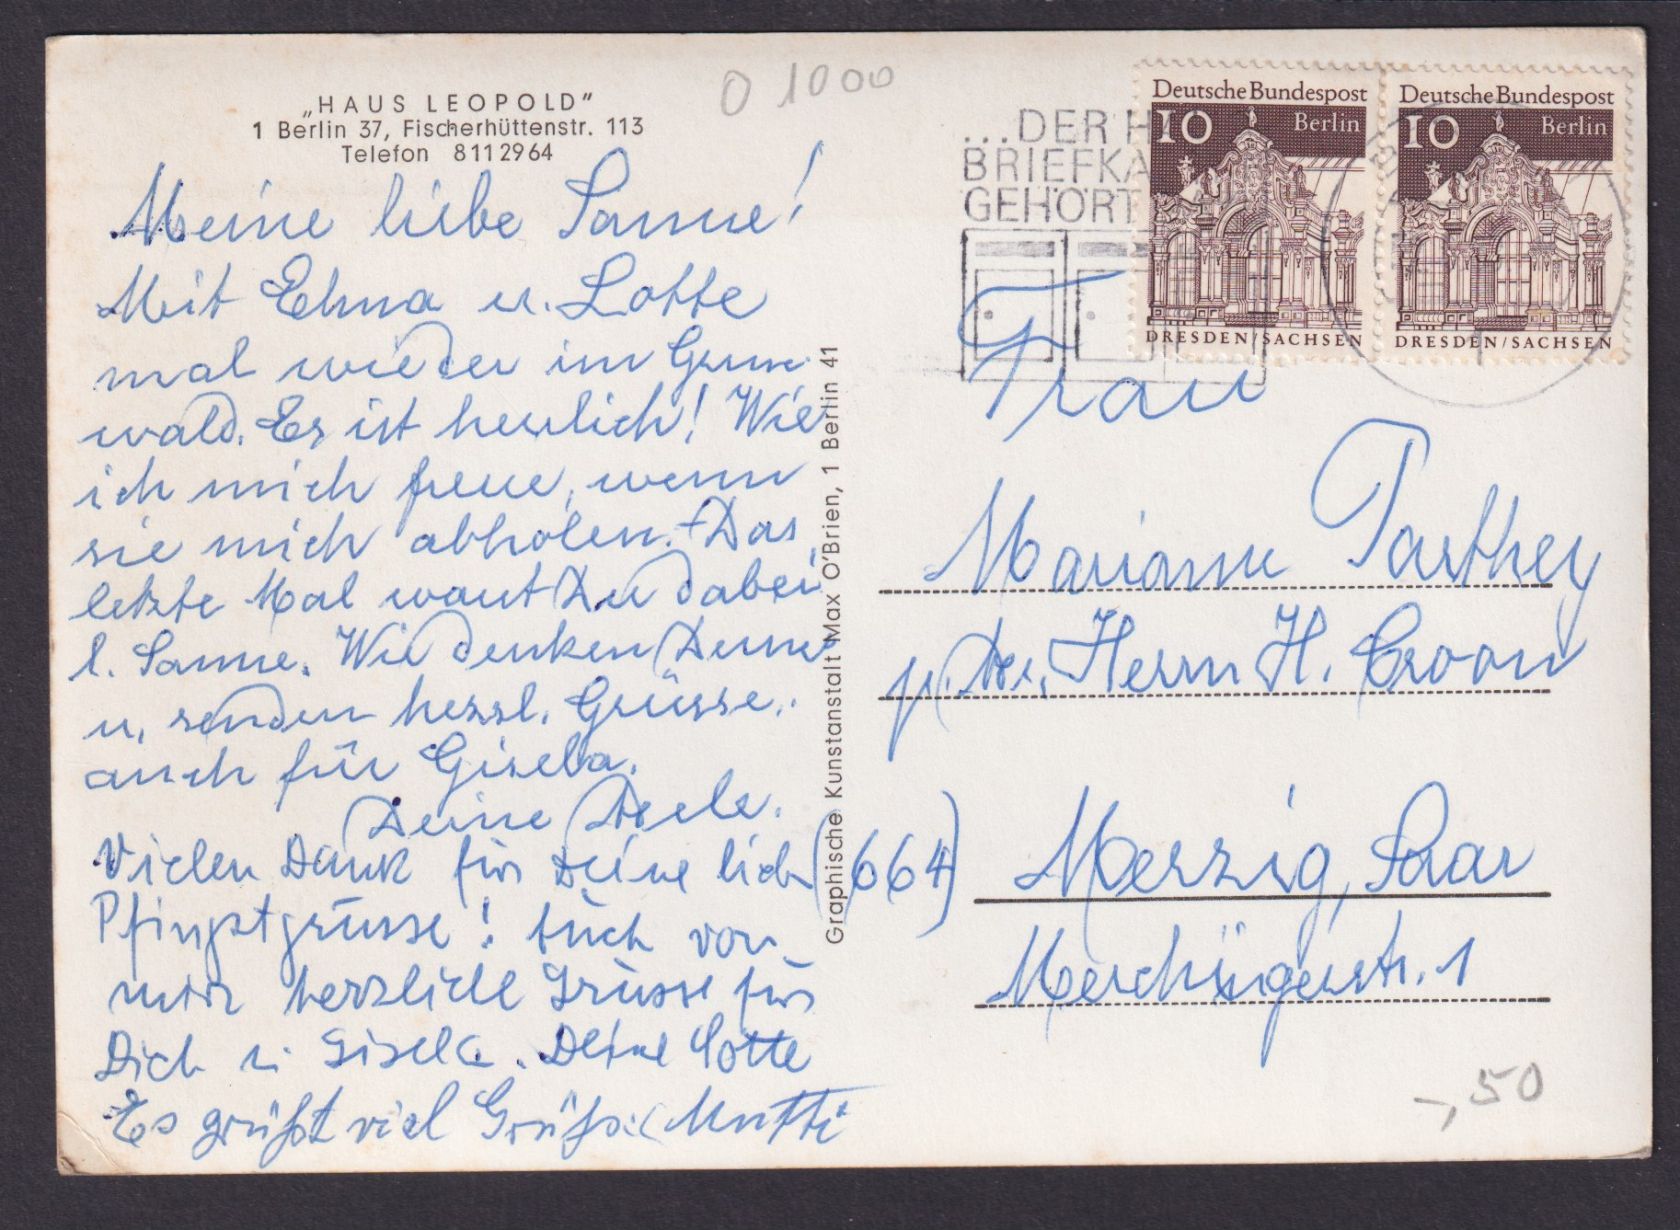 „HAUS LEOPOLD"
1 Berlin 37, Fischerhüttenstr. 113
Telefon 8112964
O 1000
Meine liebe Sanne!
Mit Erna u. Lotte
mal wieder im Grune
wald. Es ist herrlich! Wie
ich mich freue, wenn
sie mich abholen. Das
letzte Mal warst Du dabei
l. Sanne. Wir denken Deiner
u. senden herzl. Grüsse.
auch für Gisela.
Deine Adele.
Vielen Dank für Deine lieb
Pfingstgrüsse! Auch von
mir herzliche Grüsse für
Dich u Gisela. Deine Lotte
Es grüßt viel Mutti
Graphische Kunstanstalt Max O'Brien, 1 Berlin 41
...DER H
BRIEFKA
GEHÖRT
Deutsche Bundespost
10 Berlin
DRESDEN/SACHSEN
Deutsche Bundespost
10 Berlin
DRESDEN/SACHSEN
Frau
Marianne Parthey
p. Adr. Herrn H. Croon
(664) Merzig, Saar
Merchingerstr. 1
-,50